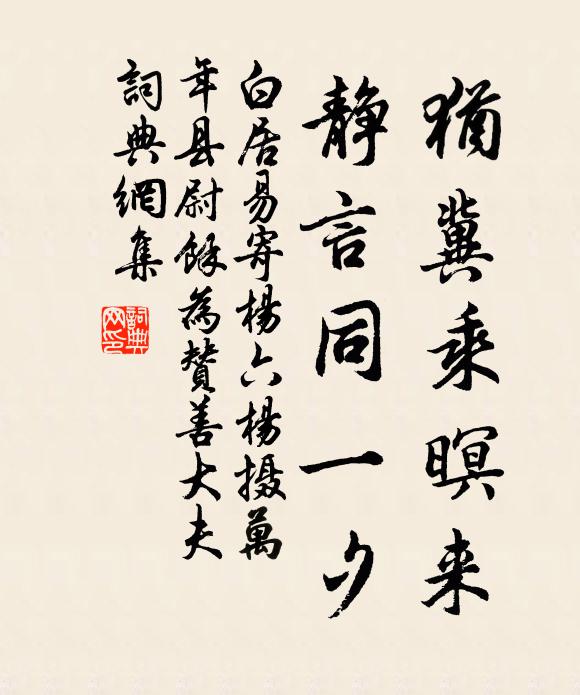 猶冀乘暝来
静言同一夕
白居易寄楊六楊摄萬
年县尉餘為贊善大夫
詞典網集
詞典
网印